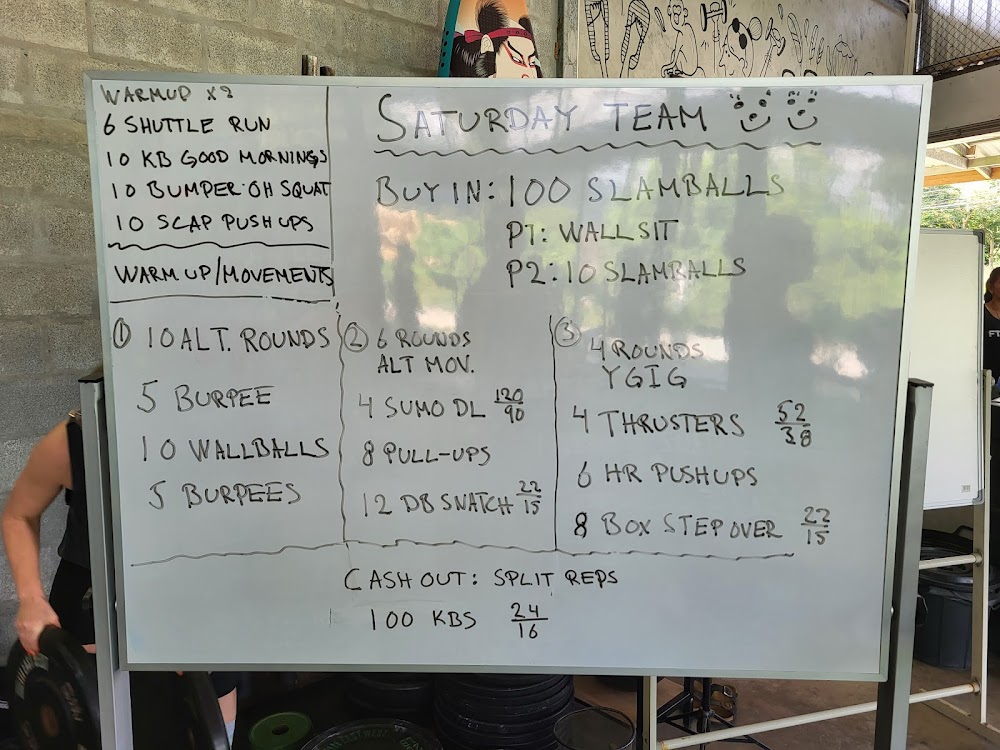 WARMUP x2
6 SHUTTLE RUN
10 KB GOOD MORNINGS
10 BUMPER OH SQUAT
10 SCAP PUSHUPS
WARM UP/MOVEMENTS
SATURDAY TEAM
BUY IN: 100 SLAMBALLS
P1: WALLSIT
P2: 10 SLAMBALLS
① 10 ALT. ROUNDS
5 BURPEE
10 WALLBALLS
5 BURPEES
② 6 ROUNDS
ALT MOV.
4 SUMO DL 120/90
8 PULL-UPS
12 DB SNATCH 22/15
③ 4 ROUNDS
YGIG
4 THRUSTERS 52/38
6 HR PUSHUPS
8 BOX STEP OVER 22/15
CASH OUT: SPLIT REPS
100 KBS 24/16